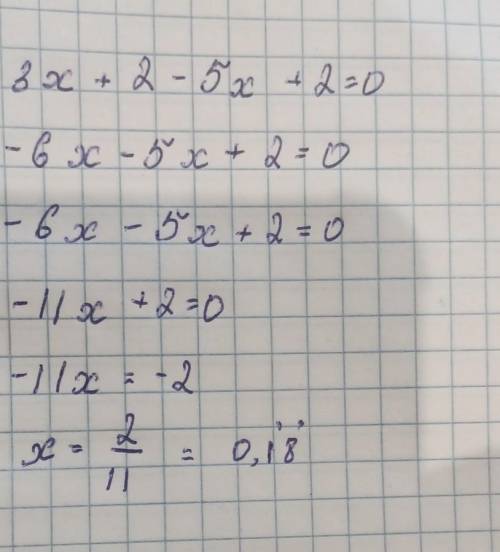 3x + 2 - 5x + 2 = 0
-6x - 5x + 2 = 0
-6x - 5x + 2 = 0
-11x + 2 = 0
-11x = -2
x = 2/11 = 0,1̇8̇